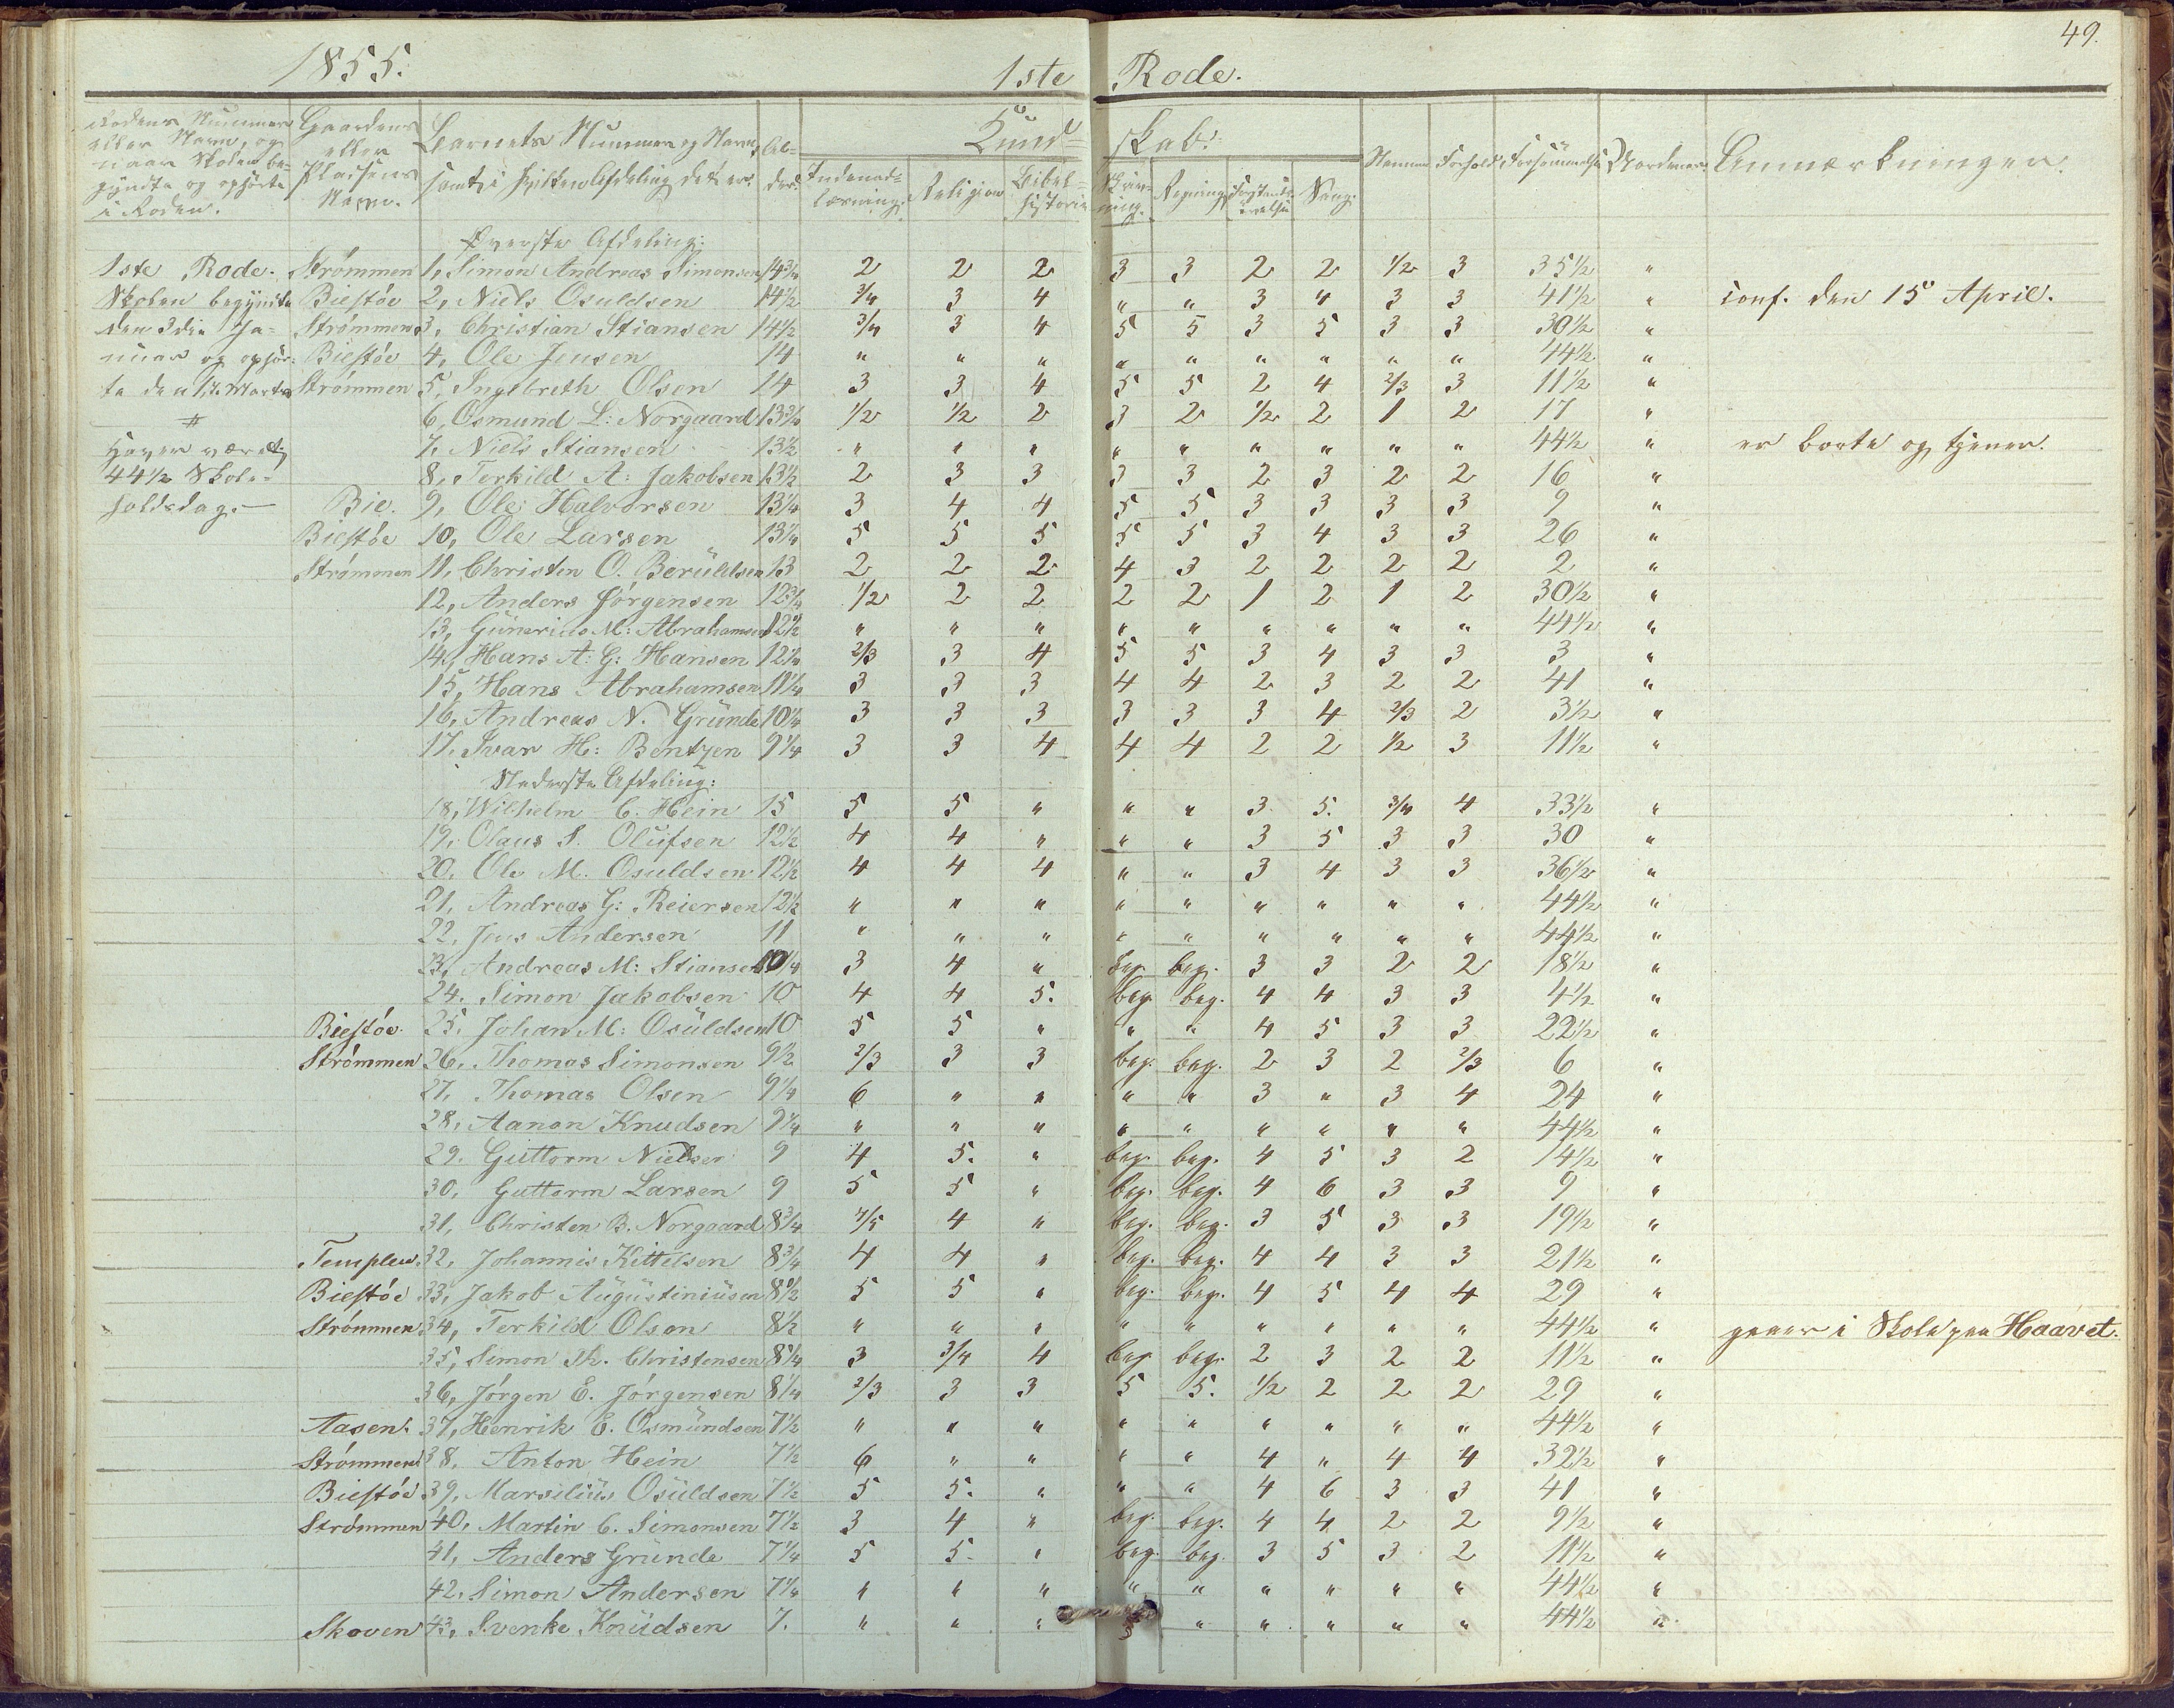 49.
1855. 1ste Rode.
Rodens Nummer eller Navn, og naar Skolen begyndte og ophørte i Roden. Gaardens eller Pladsens Navn. Barnets Nummer og Navn, samt i hvilken Afdeling det er. Alder. Kundskab: Nemme Forhold Forsømmelse Anmærkninger.
Indenadlæsning. Religion Bibelhistorie Skrivning. Regning Forstandsøvelse Sang.
Øverste Afdeling:
1ste Rode. Strömmen 1, Simon Andreas Simonsen 14 3/4 2 2 2 3 3 2 2 1/2 3 35 1/2 "
Skolen begyndte Biestöe 2, Niels Osuldsen 14 1/2 3/4 3 4 " " 3 4 3 3 41 1/2 " conf. den 15 April.
den 3die Ja- Strömmen 3, Christian Stiansen 14 1/2 3/4 3 4 5 5 3 5 3 3 30 1/2 "
nuar og ophör- Biestöe 4, Ole Jensen 14 " " " " " " " " " 44 1/2 "
te den 17. Marts Strömmen 5, Ingelbreth Olsen 14 3 3 4 5 5 2 4 2/3 3 11 1/2 "
6, Osmund L: Norgaard 13 3/4 1/2 1/2 2 3 2 1/2 2 1 2 17 "
Haver været 7, Niels Stiansen 13 1/2 " " " " " " " " " 44 1/2 " er borte og tjener.
44 1/2 Skole- 8, Terkild A: Jakobsen 13 1/2 2 3 3 3 3 2 3 2 2 16 "
holdsdag.— Bie. 9, Ole Halvorsen 13 1/4 3 4 4 5 5 3 3 3 3 9 "
Biestöe 10, Ole Larsen 13 1/4 5 5 5 5 5 3 4 3 3 26 "
Strömmen 11, Christen O. Berüldsen 13 2 2 2 4 3 2 2 2 2 2 "
12, Anders Jörgensen 12 3/4 1/2 2 2 2 2 1 2 1 2 30 1/2 "
13, Günerius M: Abrahamsen 12 1/2 " " " " " " " " " 44 1/2 "
14, Hans A: G: Hansen 12 1/4 2/3 3 4 5 5 3 4 3 3 3 "
15, Hans Abrahamsen 11 1/4 3 3 3 4 4 2 3 2 2 41 "
16, Andreas N. Gründe 10 1/4 3 3 3 3 3 3 4 2/3 2 3 1/2 "
17. Ivar H: Bentzen 9 1/4 3 3 4 4 4 2 2 1/2 3 11 1/2 "
Nederste Afdeling:
18, Wilhelm C. Hein 15 5 5 " " " 3 5. 3/4 4 33 1/2 "
19, Olaus S. Olüfsen 12 1/2 4 4 " " " 3 5 3 3 30 "
20. Ole M. Osuldsen 12 1/2 4 4 4 " " 3 4 3 3 36 1/2 "
21, Andreas G: Reiersen 12 1/2 " " " " " " " " " 44 1/2 "
22, Jens Andersen 11 " " " " " " " " " 44 1/2 "
23, Andreas M: Stiansen 10 1/4 3 4 " beg. beg. 3 3 2 2 18 1/2 "
24. Simon Jakobsen 10 4 4 5. beg. beg. 4 4 3 3 4 1/2 "
Biestöe. 25. Johan M: Osüldsen 10 5 5 " " " 4 5 3 3 22 1/2 "
Strömmen 26, Thomas Simonsen 9 1/2 2/3 3 3 beg. beg. 2 3 2 2/3 6 "
27, Thomas Olsen 9 1/4 6 " " " " 3 " 3 4 24 "
28, Aanon Knudsen 9 1/4 " " " " " " " " " 44 1/2 "
29. Güttorm Nielsen 9 4 5. " beg. beg. 4 5 3 2 14 1/2 "
30, Guttorm Larsen 9 5 5 " beg. beg. 4 6 3 3 9 "
31, Christen B. Norgaard 8 3/4 4/5 4 " beg. beg. 3 5 3 3 19 1/2 "
Templen. 32, Johannis Kittelsen 8 3/4 4 4 " beg. beg. 4 4 3 3 21 1/2 "
Biestöe 33, Jakob Aügüstiniüsen 8 1/2 5 5 " beg. beg. 4 5 4 4 29 "
Strömmen 34, Terkild Olson 8 1/2 " " " " " " " " " 44 1/2 " gaaer i Skole paa Haavet.
35, Simon Th. Christensen 8 1/4 3 3/4 4 beg. beg. 2 3 2 2 11 1/2 "
36, Jörgen E. Jörgensen 8 1/4 2/3 3 3 5 5. 1/2 2 2 2 29 "
Aasen. 37, Henrik E. Osmündsen 7 1/2 " " " " " " " " " 44 1/2 "
Strömmen 38. Anton Hein 7 1/2 6 " " " " 4 " 4 4 32 1/2 "
Biestöe 39, Marsilius Osüldsen 7 1/2 5 5. " " " 4 6 3 3 41 "
Strömmen 40, Martin C. Simonsen 7 1/2 3 4 " beg. beg. 4 4 2 2 9 1/2 "
41, Anders Gründe 7 1/4 5 5. " beg. beg. 3 5 3 2 11 1/2 "
42. Simon Andersen 7 1/4 " " " " " " " " " 44 1/2 "
Skoven 43, Svenke Knüdsen 7. " " " " " " " " 44 1/2 "